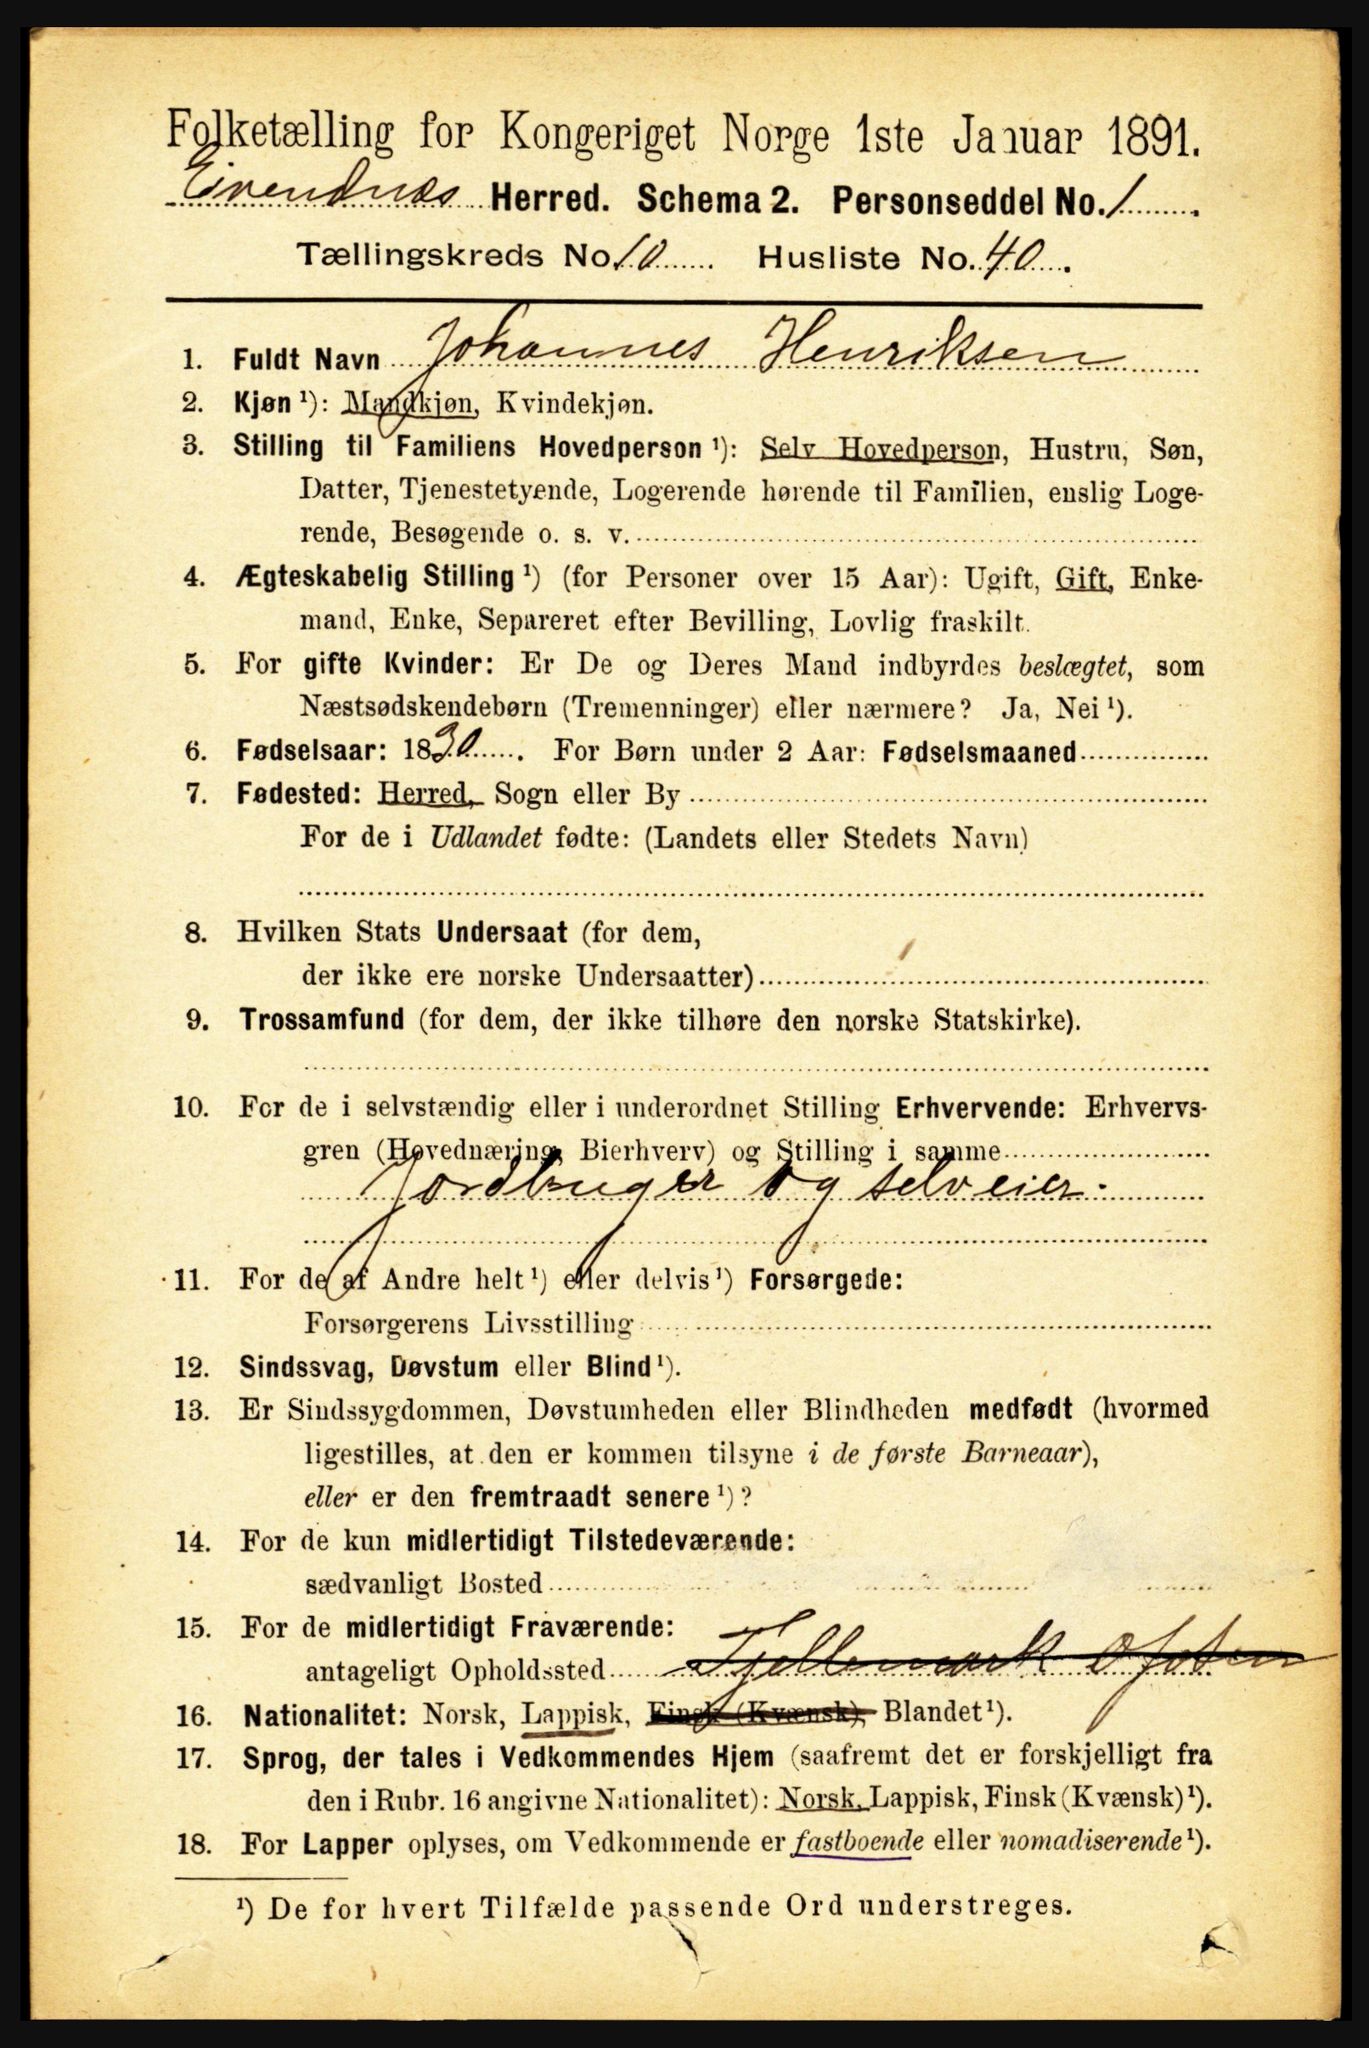 Folketælling for Kongeriget Norge 1ste Januar 1891.
Evendnæs Herred. Schema 2. Personseddel No. 1
Tællingskreds No. 10 Husliste No. 40.
1. Fuldt Navn Johannes Henriksen
2. Kjøn ¹): Mandkjøn, Kvindekjøn.
3. Stilling til Familiens Hovedperson ¹): Selv Hovedperson, Hustru, Søn,
Datter, Tjenestetyende, Logerende hørende til Familien, enslig Loge-
rende, Besøgende o. s. v.
4. Ægteskabelig Stilling ¹) (for Personer over 15 Aar): Ugift, Gift, Enke-
mand, Enke, Separeret efter Bevilling, Lovlig fraskilt.
5. For gifte Kvinder: Er De og Deres Mand indbyrdes beslægtet, som
Næstsødskendebørn (Tremenninger) eller nærmere? Ja, Nei ¹).
6. Fødselsaar: 1830. For Børn under 2 Aar: Fødselsmaaned
7. Fødested: Herred, Sogn eller By
For de i Udlandet fødte: (Landets eller Stedets Navn)
8. Hvilken Stats Undersaat (for dem,
der ikke ere norske Undersaatter)
9. Trossamfund (for dem, der ikke tilhøre den norske Statskirke).
10. For de i selvstændig eller i underordnet Stilling Erhvervende: Erhvervs-
gren (Hovednæring, Bierhverv) og Stilling i samme
Jordbruger og selveier.
11. For de af Andre helt ¹) eller delvis ¹) Forsørgede:
Forsørgerens Livsstilling
12. Sindssvag, Døvstum eller Blind ¹).
13. Er Sindssygdommen, Døvstumheden eller Blindheden medfødt (hvormed
ligestilles, at den er kommen tilsyne i de første Barneaar),
eller er den fremtraadt senere ¹)?
14. For de kun midlertidigt Tilstedeværende:
sædvanligt Bosted
15. For de midlertidigt Fraværende:
antageligt Opholdssted Fjellemark Ofoten
16. Nationalitet: Norsk, Lappisk, Finsk (Kvænsk), Blandet ¹).
17. Sprog, der tales i Vedkommendes Hjem (saafremt det er forskjelligt fra
den i Rubr. 16 angivne Nationalitet): Norsk, Lappisk, Finsk (Kvænsk) ¹).
18. For Lapper oplyses, om Vedkommende er fastboende eller nomadiserende ¹).
¹) De for hvert Tilfælde passende Ord understreges.